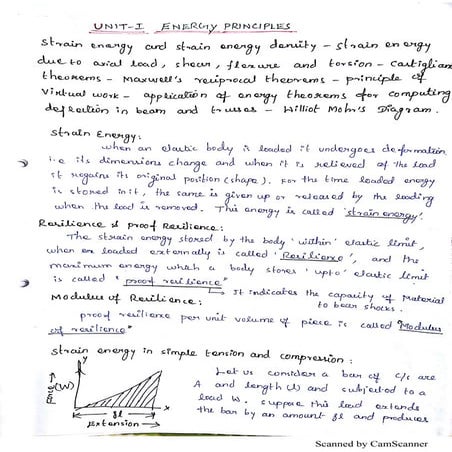 UNIT-I ENERGY PRINCIPLES
Strain energy and strain energy density – strain energy
due to axial load, shear, flexure and torsion – Castiglian
theorems – Maxwell's reciprocal theorems – principle of
Virtual work – application of energy theorems for computing
deflection in beam and trusses – Williot Mohr's Diagram.
Strain Energy:
When an elastic body is loaded it undergoes deformation
i.e its dimensions change and when it is relieved of the load
it regains its original position (shape). For the time loaded energy
is stored in it, the same is given up or released by the loading
when the load is removed. This energy is called 'strain energy'.
Resilience & proof Resilience:
The strain energy stored by the body 'within' elastic limit,
when loaded externally is called 'Resilience', and the
maximum energy which a body stores 'upto' elastic limit
is called "proof resilience"
It indicates the capacity of material
to bear shocks.
Modulus of Resilience:
proof resilience per unit volume of piece is called "Modulus
of resilience"
Strain energy in simple tension and compression:
y
Force (W)
δl
x
Extension
Let us consider a bar of c/s are
A and length (l) and subjected to a
load W. suppose this load extends
the bar by an amount δl and produces
Scanned by CamScanner